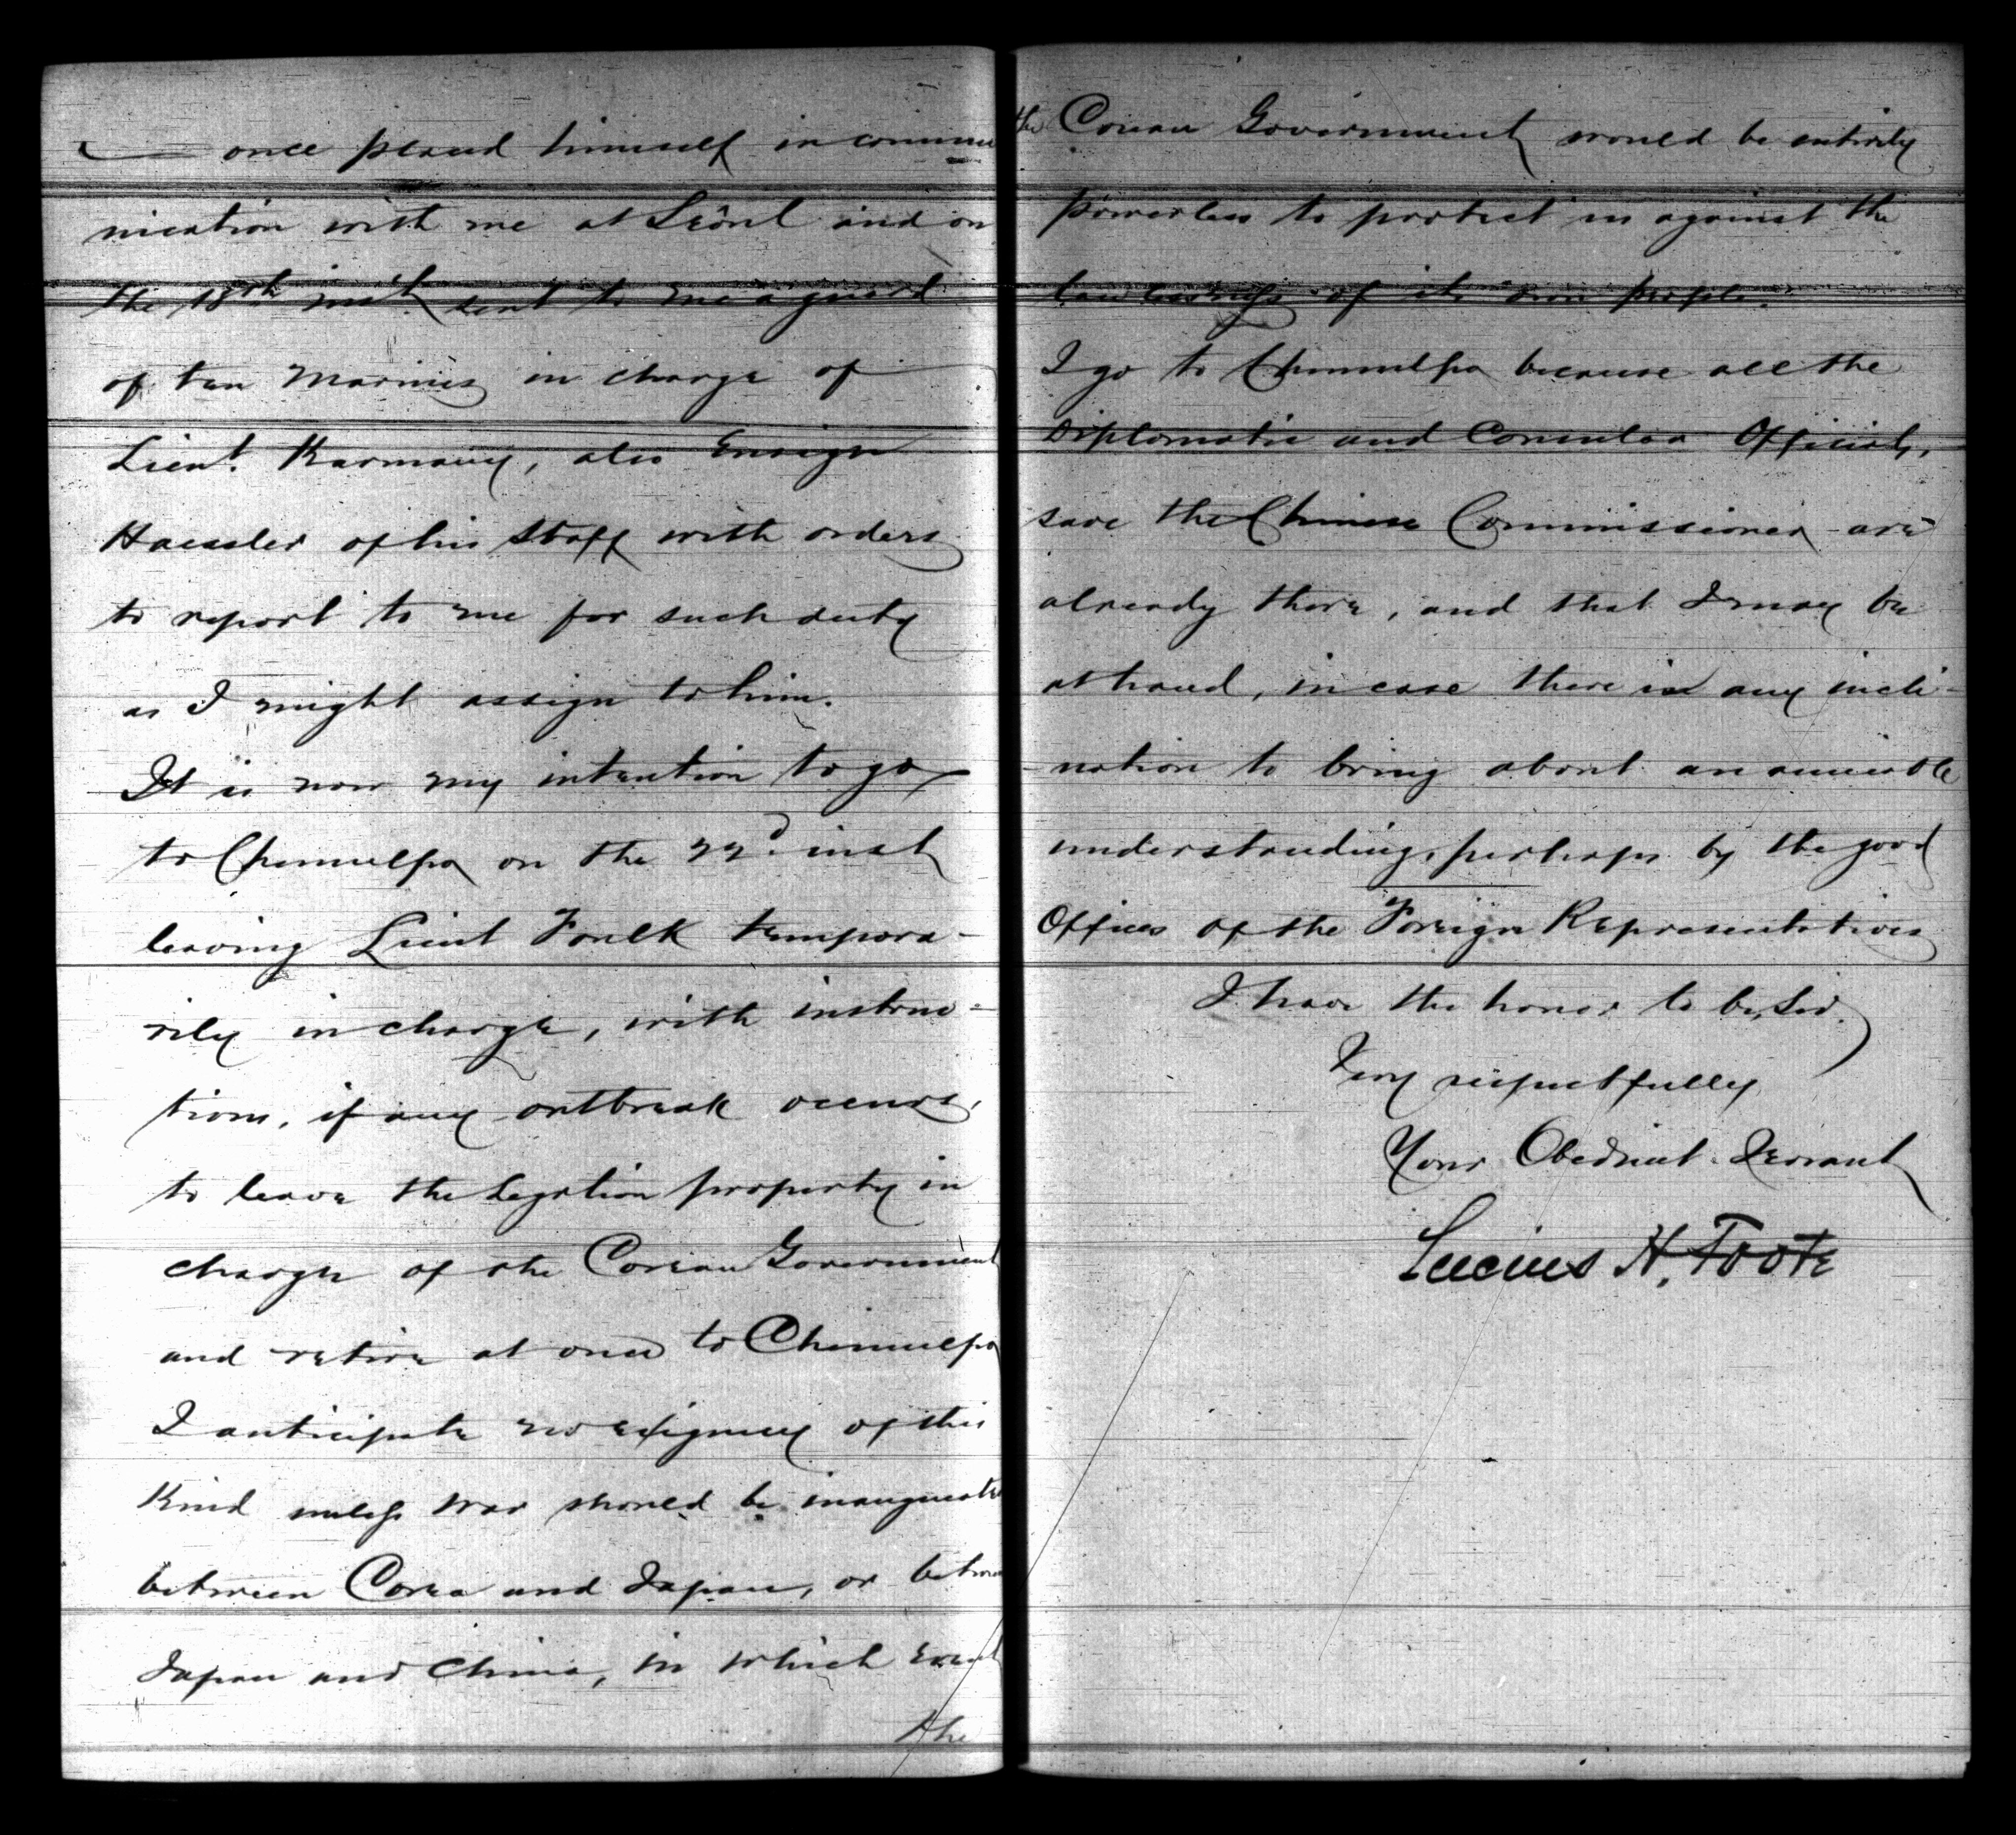 once placed himself in commu
nication with me at Seöul and on
the 18th inst sent to me a guard
of ten Marines in charge of
Lieut. Karmany, also Ensign
Haeseler of his Staff with orders
to report to me for such duty
as I might assign to him.
It is now my intention to go
to Chemulpo on the 22d inst
leaving Lieut Foulk tempora-
rily in charge, with instruc-
tions, if any outbreak occurs,
to leave the Legation property in
charge of the Corean Government
and retire at once to Chemulpo
I anticipate no exigency of this
Kind unless war should be inaugurated
between Corea and Japan, or between
Japan and China, in which event
the
the Corean Government would be entirely
powerless to protect us against the
lawlessness of its own people.
I go to Chemulpo because all the
Diplomatic and Consular Officials,
save the Chinese Commissioner are
already there, and that I may be
at hand, in case there is any incli-
nation to bring about an amicable
understanding, perhaps by the good
Offices of the Foreign Representatives
I have the honor to be, Sir.
Very respectfully
Your Obedient Servant
Lucius H. Foote